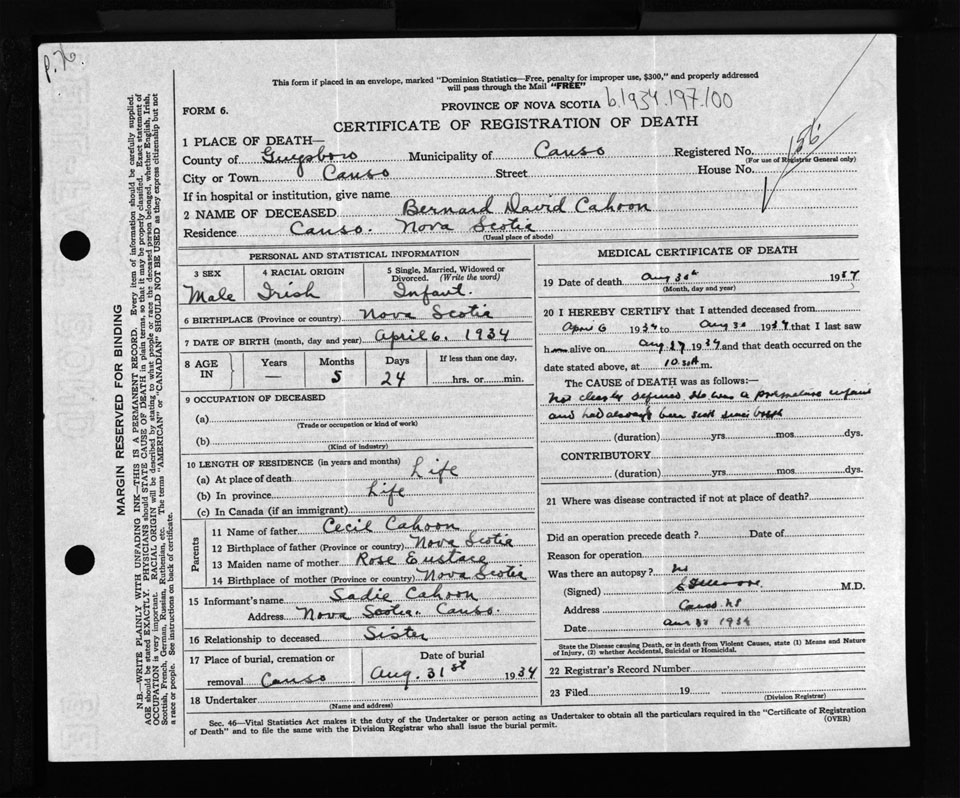 P. 76.
This form if placed in an envelope, marked "Dominion Statistics—Free, penalty for improper use, $300," and properly addressed
will pass through the Mail "FREE"
FORM 6.
PROVINCE OF NOVA SCOTIA b.1934.197.100
CERTIFICATE OF REGISTRATION OF DEATH
1 PLACE OF DEATH—
County of Guysboro Municipality of Canso Registered No. 156
(For use of Registrar General only)
City or Town Canso Street House No.
If in hospital or institution, give name
2 NAME OF DECEASED Bernard David Cahoon
Residence Canso. Nova Scotia
(Usual place of abode)
PERSONAL AND STATISTICAL INFORMATION
3 SEX 4 RACIAL ORIGIN 5 Single, Married, Widowed or
Divorced. (Write the word)
Male Irish Infant.
6 BIRTHPLACE (Province or country) Nova Scotia
7 DATE OF BIRTH (month, day and year) April 6. 1934
8 AGE IN Years Months Days If less than one day,
— 5 24 hrs. or min.
9 OCCUPATION OF DECEASED
(a)
(Trade or occupation or kind of work)
(b)
(Kind of industry)
10 LENGTH OF RESIDENCE (in years and months)
(a) At place of death Life
(b) In province Life
(c) In Canada (if an immigrant)
Parents
11 Name of father Cecil Cahoon
12 Birthplace of father (Province or country) Nova Scotia
13 Maiden name of mother Rose Eustace
14 Birthplace of mother (Province or country) Nova Scotia
15 Informant's name Sadie Cahoon
Address Nova Scotia. Canso.
16 Relationship to deceased Sister
17 Place of burial, cremation or Date of burial
removal Canso Aug. 31st 1934
18 Undertaker
(Name and address)
MEDICAL CERTIFICATE OF DEATH
19 Date of death Aug 30th 1934
(Month, day and year)
20 I HEREBY CERTIFY that I attended deceased from
April 6 1934 to Aug 30 1934 that I last saw
h alive on Aug 27 1934 and that death occurred on the
date stated above, at 10 m.
The CAUSE OF DEATH was as follows:—
Not clearly defined He was a premature infant
and had always been since birth
(duration) yrs. mos. dys.
CONTRIBUTORY
(duration) yrs. mos. dys.
21 Where was disease contracted if not at place of death?
Did an operation precede death ? Date of
Reason for operation
Was there an autopsy? No
(Signed) M.D.
Address Canso NS
Date Aug 30 1934
State the Disease causing Death, or in death from Violent Causes, state (1) Means and Nature
of Injury, (2) whether Accidental, Suicidal or Homicidal.
22 Registrar's Record Number
23 Filed 19
(Division Registrar)
Sec. 46—Vital Statistics Act makes it the duty of the Undertaker or person acting as Undertaker to obtain all the particulars required in the "Certificate of Registration
of Death" and to file the same with the Division Registrar who shall issue the burial permit. (OVER)
MARGIN RESERVED FOR BINDING
N.B.—WRITE PLAINLY WITH UNFADING INK—THIS IS A PERMANENT RECORD. Every item of information should be carefully supplied.
AGE should be stated EXACTLY. PHYSICIANS should STATE CAUSE OF DEATH in plain terms, so that it may be properly classified. Exact statement of
OCCUPATION is very important. RACIAL ORIGIN will be described by stating to what people or race the deceased person belonged, whether English, Irish,
Scottish, French, German, Russian, Ruthenian, etc. The terms "AMERICAN" or "CANADIAN" SHOULD NOT BE USED as they express citizenship but not
a race or people. See instructions on back of certificate.